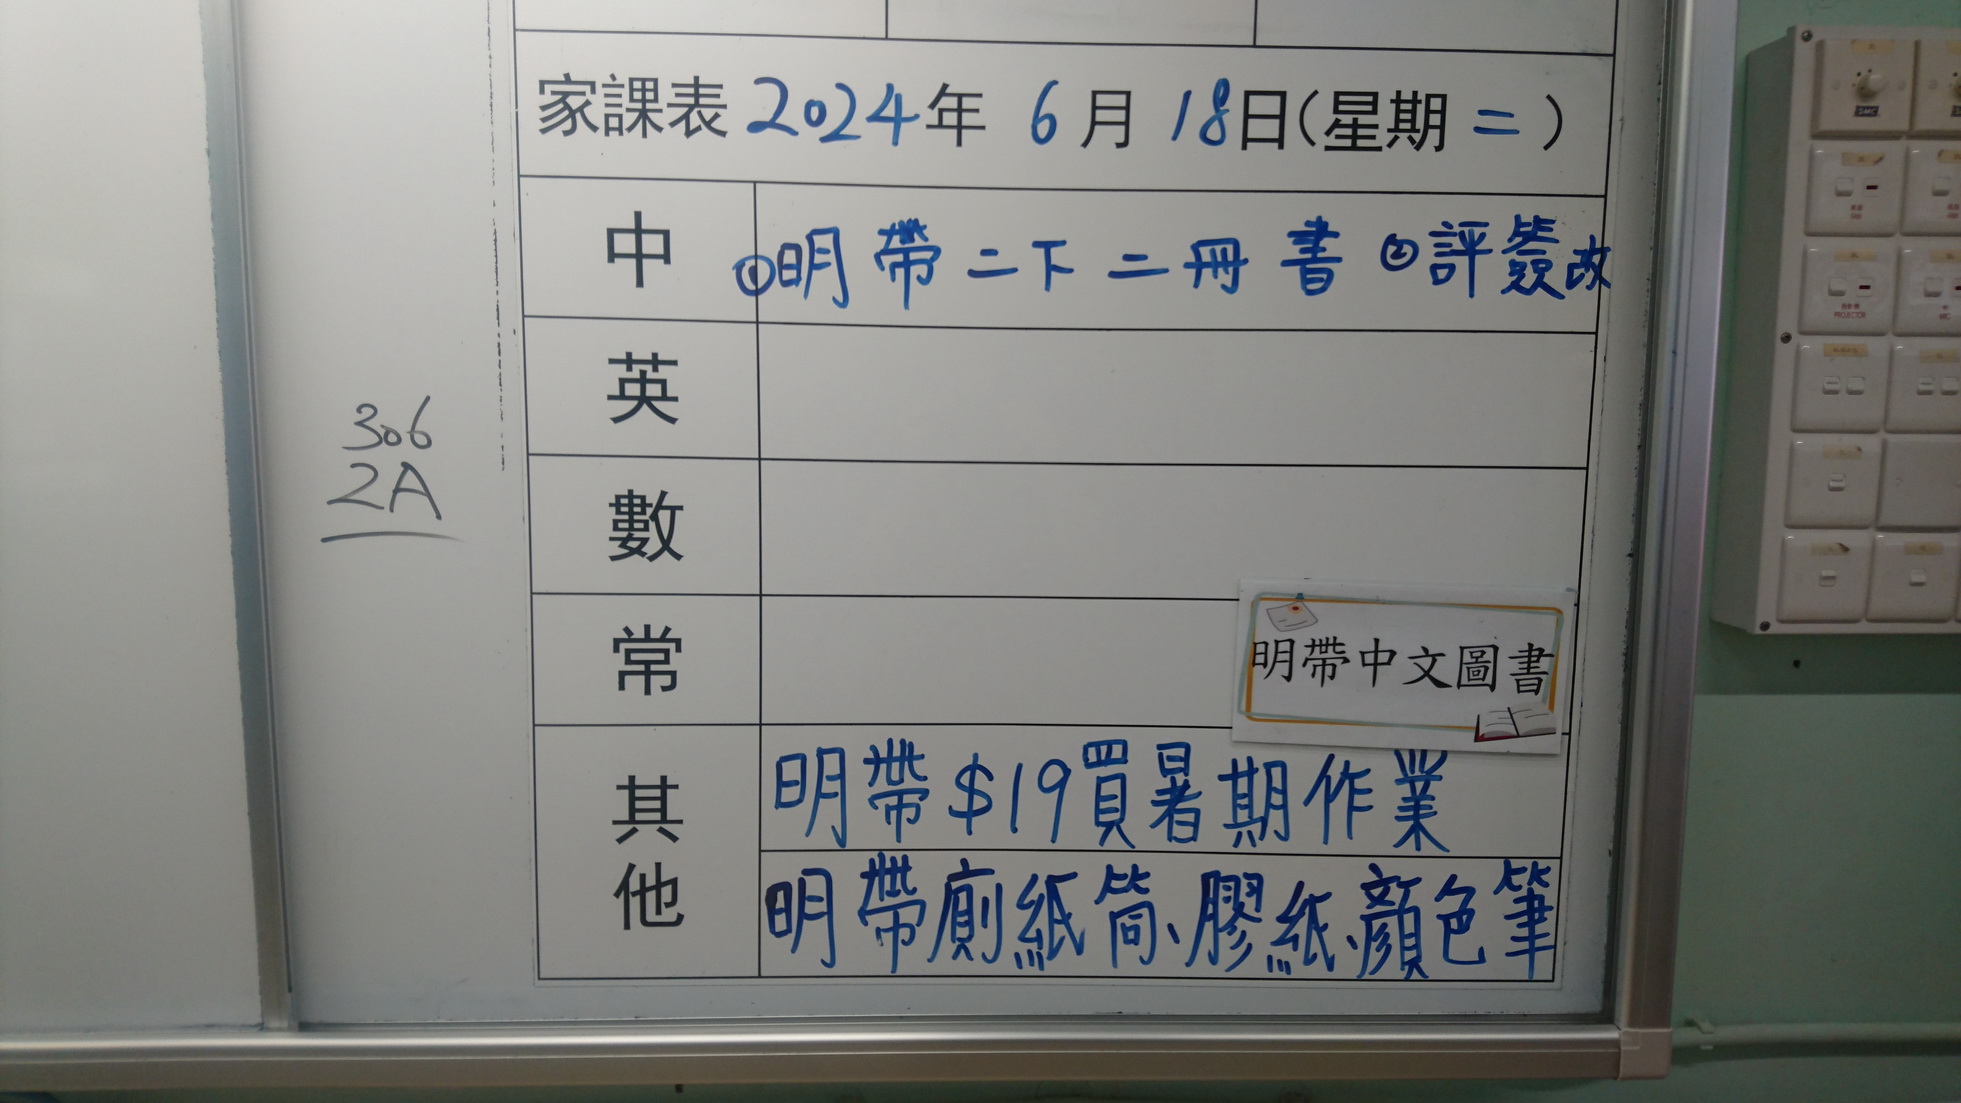 家課表 2024年 6月 18日(星期二)
中 ①明帶二下二冊書 ②評簽改
英
數
常
明帶中文圖書
其他
明帶$19買暑期作業
明帶廁紙筒、膠紙、顏色筆
306
2A
PROJECTOR